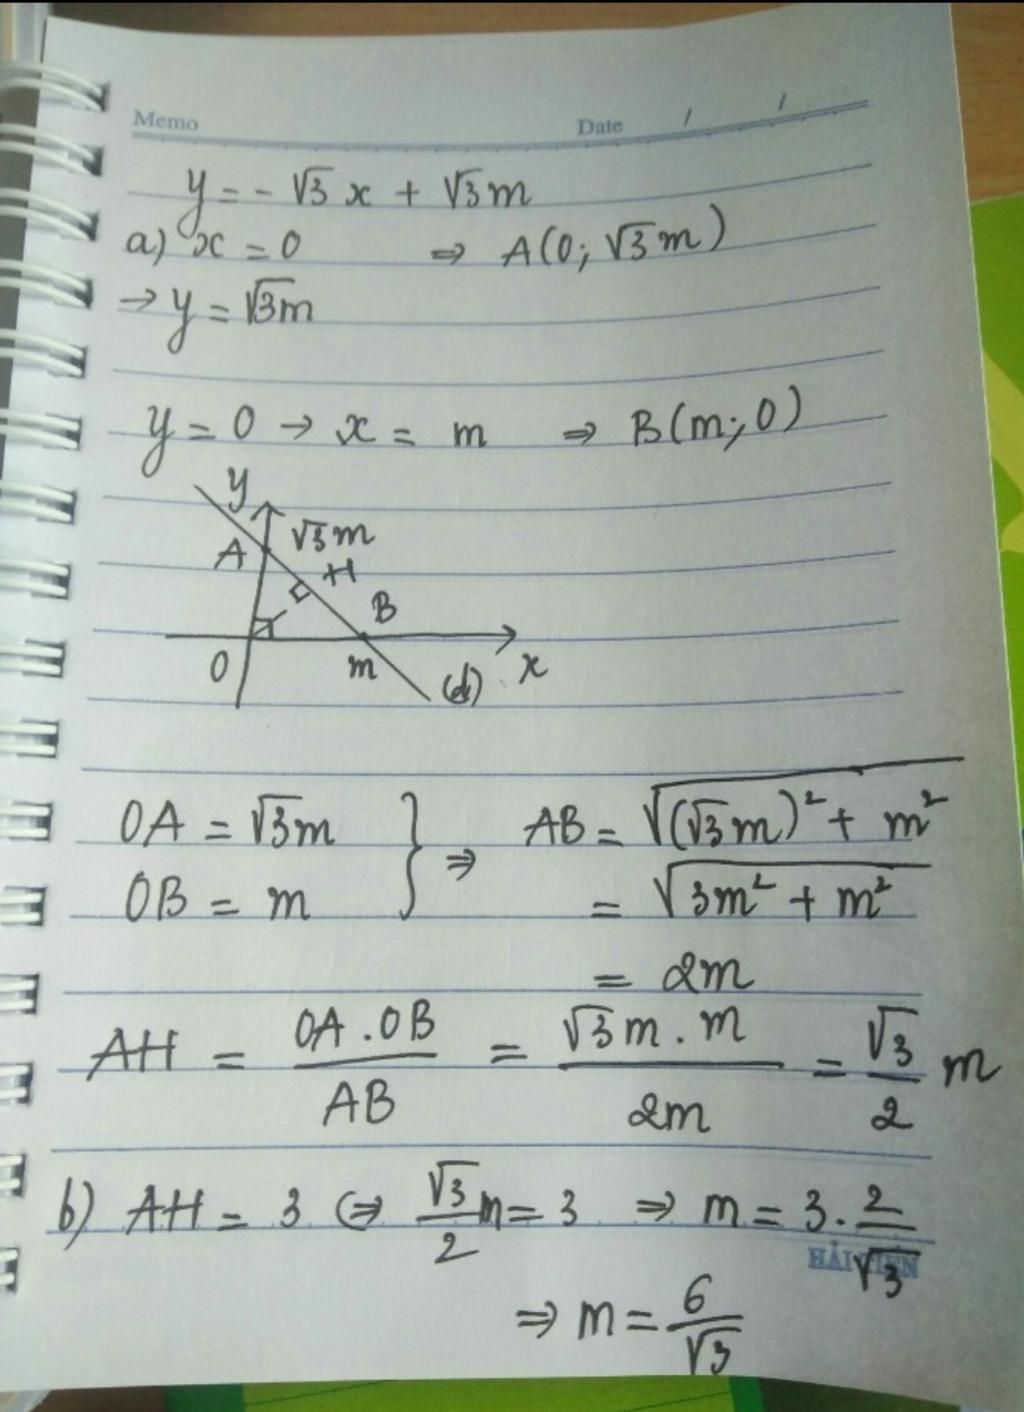 Memo Date / /
y = - √3 x + √3 m
a) x = 0 ⇒ A(0; √3 m)
→ y = √3m
y = 0 → x = m ⇒ B(m; 0)
y
A √3 m
H
B
O m (d) x
OA = √3m } ⇒ AB = √((√3 m)² + m²)
OB = m = √(3m² + m²)
= 2m
AH = OA . OB / AB = √3 m . m / 2m = √3/2 m
b) AH = 3 ⇔ √3/2 m = 3 ⇒ m = 3. 2/√3
HẢI TIẾN
⇒ m = 6/√3